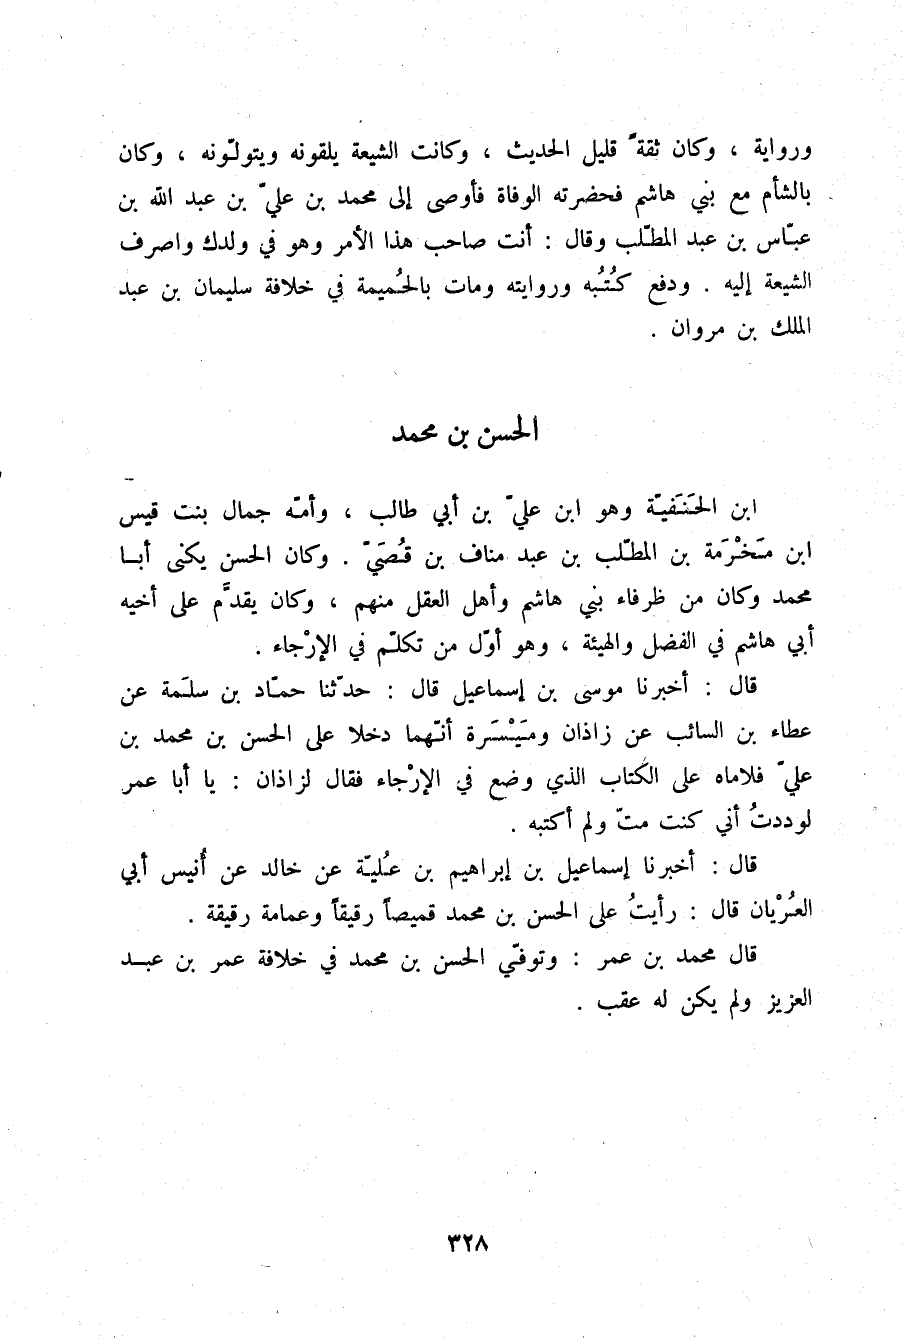 ورواية ، وكان ثقة ً قليل الحديث ، وكانت الشيعة يلقونه ويتولّونه ، وكان
بالشأم مع بني هاشم فحضرته الوفاة فأوصى إلى محمد بن عليّ بن عبد الله بن
عبّاس بن عبد المطّلب وقال : أنت صاحب هذا الأمر وهو في ولدك واصرف
الشيعة إليه . ودفع كُتُبه وروايته ومات بالحُميمة في خلافة سليمان بن عبد
الملك بن مروان .
الحسن بن محمد
ابن الحَنَفيّة وهو ابن عليّ بن أبي طالب ، وأمّه جمال بنت قيس
ابن مَخْرَمة بن المطّلب بن عبد مناف بن قُصَيّ . وكان الحسن يكنى أبا
محمد وكان من ظرفاء بني هاشم وأهل العقل منهم ، وكان يقدَّم على أخيه
أبي هاشم في الفضل والهيئة ، وهو أوّل من تكلّم في الإرْجاء .
قال : أخبرنا موسى بن إسماعيل قال : حدّثنا حمّاد بن سلَمة عن
عطاء بن السائب عن زاذان ومَيْسَرة أنّهما دخلا على الحسن بن محمد بن
عليّ فلاماه على الكتاب الذي وضع في الإرْجاء فقال لزاذان : يا أبا عمر
لوددتُ أني كنت متّ ولم أكتبه .
قال : أخبرنا إسماعيل بن إبراهيم بن عُليّة عن خالد عن أُنيس أبي
العُرْيان قال : رأيتُ على الحسن بن محمد قميصاً رقيقاً وعمامة رقيقة .
قال محمد بن عمر : وتوفّي الحسن بن محمد في خلافة عمر بن عبد
العزيز ولم يكن له عقب .
٣٢٨